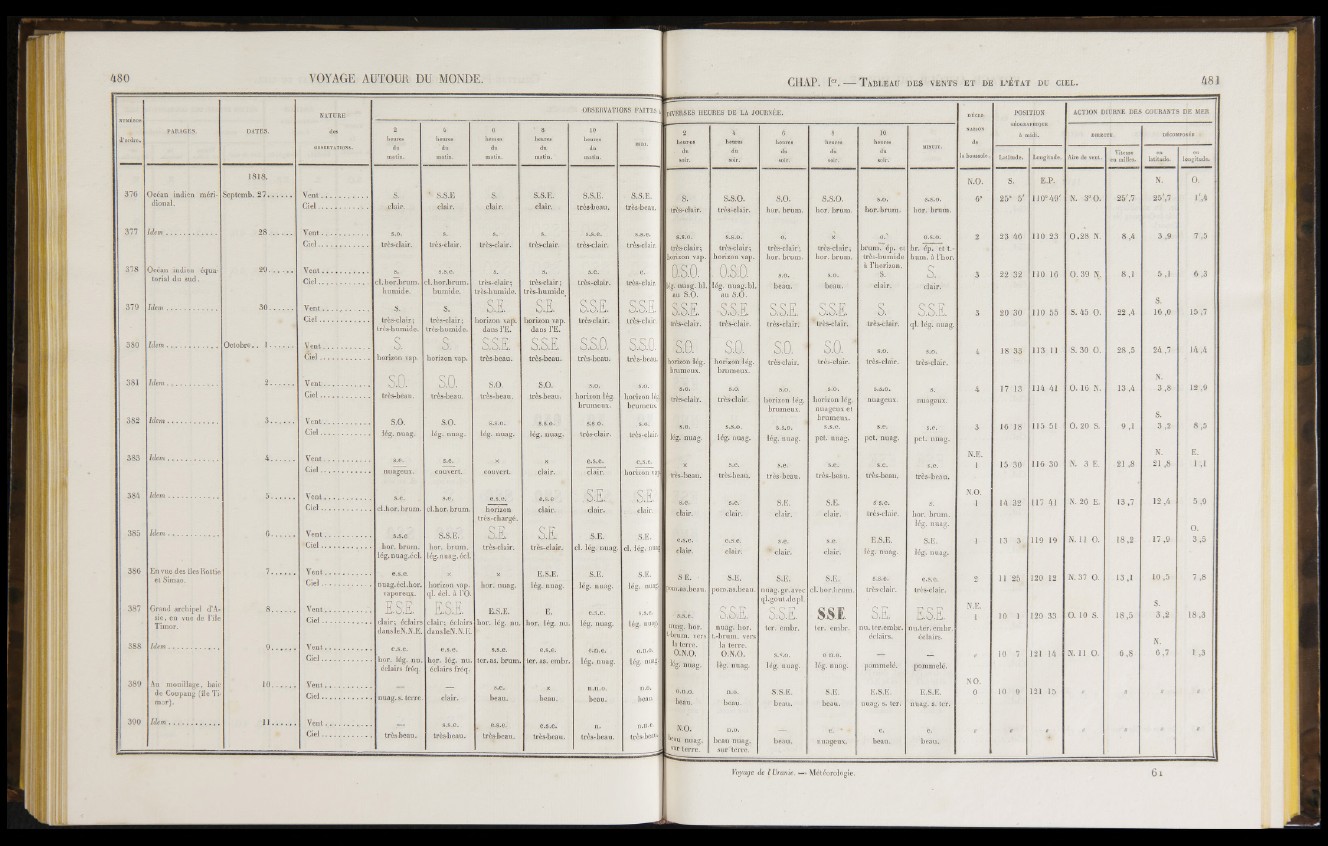 480
VOYAGE AUTOUR DU MONDE.
NUMÉROS
d'ordre.
PARAGES.
DATES.
NATURE
des
OBSERVATIONS.
OBSERVATIONS FAITES
2 heures du matin.
4 heures du matin.
6 heures du matin.
8 heures du matin.
10 heures du matin.
MIDI.
1818.
376 Océan indien méri- Septemb. 27...... Vent............ S. S.S.E S. S.S.E. S.S.E. S.S.E.
dional. Ciel............ clair. clair. clair. clair. très-beau. très-beau.
377 Idem............ 28...... Vent............ s.o. s. s. s. s.s.o. s.s.o.
Ciel............ très-clair. très-clair. très-clair. très-clair. très-clair. très-clair.
378 Océan indien équa- 29...... Vent............ s. s.s.e. s. s. s.e. e.
torial du sud. Ciel............ cl. hor. brum. cl. hor. brum. très-clair; très-clair; très-clair. très-clair.
humide. humide. très-humide. très-humide
379 Idem............ 30...... Vent............ S. S. S.E. S.E. S.S.E. S.S.E.
Ciel............ très-clair; très-clair; horizon vap. horizon vap. très-clair. très-clair
très-humide. très-humide. dans l'E. dans l'E.
380 Idem............ Octobre.. 1...... Vent............ S. S. S.S.E. S.S.E S.S.O. S.S.O.
Ciel............ horizon vap. horizon vap. très-beau. très-beau. très-beau. très-beau.
381 Idem............ 2...... Vent............ S.O. S.O. S.O. S.O. s.o. s.o.
Ciel............ très-beau. très-beau. très-beau. très-beau. horizon lég. horizon lég.
brumeux. brumeux.
382 Idem............ 3...... Vent............ S.O. S.O. s.s.o. s.s.o. s.s.o. s.o.
Ciel............ lég. nuag. lég. nuag. lég. nuag. lég. nuag. très-clair. très-clair
383 Idem............ 4...... Vent............ s.e. s.e. e.s.e. e.s.e.
Ciel............ nuageux. couvert. couvert. clair. clair. horizon vap
384 Idem............ 5...... Vent............ s.e. s.e. e.s.e. e.s.e S.E. S.E
Ciel............ cl. hor. brum. cl. hor. brum. horizon clair. clair. clair.
très-chargé.
385 Idem............ 6...... Vent............ s.s.e. S.S.E. S.E. S.E. S.E. S.E.
Ciel............ hor. brum. hor. brum. très-clair. très-clair. cl. lég. nuag. cl. lég. nuag
lég. nuag. écl. lég. nuag. écl.
386 En vue des îles Rottie 7...... Vent............ e.s.e. E.S.E. S.E. S.E.
et Simao. Ciel............ nuag. écl. hor. horizon vap. hor. nuag. lég. nuag. lég. nuag. lég. nuag
vaporeux. ql. écl. à l'O.
387 Grand archipel d'A- 8...... Vent............ E.S.E. E.S.E. E.S.E. E. e.s.e. s.s.e.
sie, en vue de l'île Ciel............ clair; éclairs clair; éclairs hor. lég. nu. hor. lég. nu. lég. nuag. lég. nuag.
Timor. dans le N.N.E. dans le N.N.E.
388 Idem............ 9...... Vent............ e.s.e. e.s.e. s.s.e. e.s.e. o.n.o. o.n.o.
Ciel............ hor. lég. nu. hor. lég. nu. ter. as. brum. ter. as. embr. lég. nuag. lég. nuag
éclairs fréq. éclairs fréq.
389 Au mouillage, baie 10...... Vent............ — — s.e. n.n.o. n.o.
de Coupang (île Ti- Ciel............ nuag. s. terre. clair. beau. beau. beau. beau
mor).
390 Idem............ 11...... Vent............ — s.s.e. e.s.e. e.s.e. n. n.n.o.
Ciel............ très-beau. très-beau. très-beau. très-beau. très-beau. très-beau.
CHAP. Ier. — TABLEAU DES VENTS ET DE L'ÉTAT DU CIEL.
481
DIVERSES HEURES DE LA JOURNÉE.
2 heures du soir.
4 heures du soir.
6 heures du soir.
8 heures du soir.
10 heures du soir.
MINUIT.
DÉCLINAISON
de
la boussole.
POSITION
GÉOGRAPHIQUE
à midi.
Latitude.
Longitude.
ACTION DIURNE DES COURANTS DE MER
DIRECTE.
DÉCOMPOSÉE
Aire de vent.
Vitesse en milles.
en latitude.
en longitude.
N.O. S. E.P. N. O.
S. S.S.O. S.O. S.S.O. s.o. s.s.o. 6° 25° 5' 110° 40' N. 3° O. 25',7 25',7 1',4
très-clair. très-clair. hor. brum. hor. brum. hor. brum. hor. brum.
s.s.o. s.s.o. o. o. o.s.o. 2 23 46 110 23 O. 28 N. 8 ,4 3 ,9 7 ,5
très-clair; très-clair; très-clair; très-clair; brum. ép. et br. ép. et t.-
horizon vap. horizon vap. hor. brum. hor. brum. très-humide hum. à l'hor.
à l'horizon.
O.S.O. O.S.O. s.o. s.o. S. S. 3 22 32 110 16 O. 39 N. 8 ,1 5 ,1 6 ,3
lég. nuag. bl. lég. nuag. bl. beau. beau. clair. clair.
au S.O. au S.O.
S.
S.S.E. S.S.E. S.S.E. S.S.E. S. S.S.E. 3 20 30 110 55 S. 45 O. 22 ,4 16 ,0 15 ,7
très-clair. très-clair. très-clair. très-clair. très-clair. ql. lég. nuag.
S.O. S.O. S.O. S.O. s.o. s.o. 4 18 33 113 11 S. 30 O. 28 ,5 24 ,7 14 ,4
horizon lég. horizon lég. très-clair. très-clair. très-clair. très-clair.
brumeux. brumeux.
N.
s.o. s.o. s.o. s.o. s.s.o. s. 4 17 13 114 41 O. 16 N. 13 ,4 3 ,8 12 ,9
très-clair. très-clair. horizon lég. horizon lég. nuageux. nuageux.
brumeux. nuageux et
brumeux.
S.
s.o. s.s.o. s.s.o. s.s.o. s.e. s.e. 3 16 18 115 51 O. 20 S. 9 ,1 3 ,2 8 ,5
lég. nuag. lég. nuag. lég. nuag. pet. nuag. pet. nuag. pet. nuag.
N.E. N. E.
s.e. s.e. s.e. s.e. s.e. 1 15 30 116 30 N. 3 E. 21 ,8 21 ,8 1 ,1
très-beau. très-beau. très-beau. très-beau. très-beau. très-beau.
N.O.
s.e. s.e. S.E. S.E. s.s.e. s. 1 14 32 117 41 N. 26 E. 13 ,7 12 ,4 5 ,9
clair. clair. clair. clair. très-clair. hor. brum.
lég. nuag.
O.
e.s.e. e.s.e. s.e. s.e. E.S.E. S.E. 1 13 3 119 19 N. 11 O. 18 ,2 17 ,9 3 ,5
clair. clair. clair. clair. lég. nuag. lég. nuag.
S.E. S.E. S.E. S.E. s.s.e. e.s.e. 2 11 25 120 12 N. 37 O. 13 ,1 10 ,5 7 ,8
pom. as. beau. pom. as. beau. nuag. gr. avec cl. hor. brum. très-clair. très-clair.
ql. gout. de pl.
N.E. S.
s.s.e. S.S.E. S.S.E. S.S.E S.E. E.S.E. 1 10 1 120 33 O. 10 S. 18 ,5 3 ,2 18 ,3
nuag. hor. nuag. hor. ter. embr. ter. embr. nu. ter. embr. nu. ter. embr.
t.-brum. vers t.-brum. vers éclairs. éclairs.
la terre. la terre.
N.
O.N.O. O.N.O. s.s.o. o.n.o. — — 〃 10 7 121 14 N. 11 O. 6 ,8 6 ,7 1 ,3
lég. nuag. lég. nuag. lég. nuag. lég. nuag. pommelé. pommelé.
N.O.
n.n.o. n.o. S.S.E. S.E. E.S.E. E.S.E. 0 10 9 121 15 〃 〃 〃 〃
beau. beau. beau. beau. nuag. s. ter. nuag. s. ter.
N.O. n.o. — e. e. e. 〃 〃 〃 〃 〃 〃 〃
beau nuag. beau nuag. beau. nuageux. beau. beau.
sur terre. sur terre.
Voyage de l'Uranie. — Météorologie.
61